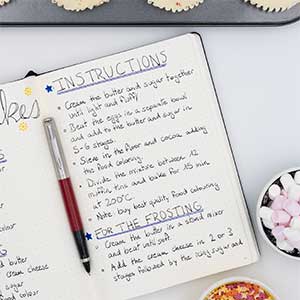 akes
INSTRUCTIONS
Cream the butter and sugar together
until light and fluffy
Beat the eggs in a separate bowl
and add to the butter and sugar in
5-6 stages.
Sieve in the flour and cocoa adding
the food colouring
Divide the mixture between 12
muffin tins and bake for 15 min
at 200°C
Note buy best quality food colouring
FOR THE FROSTING
Cream the butter in a stand mixer
and beat until soft
Add the cream cheese in 2 or 3
stages followed by the icing sugar and
cream cheese